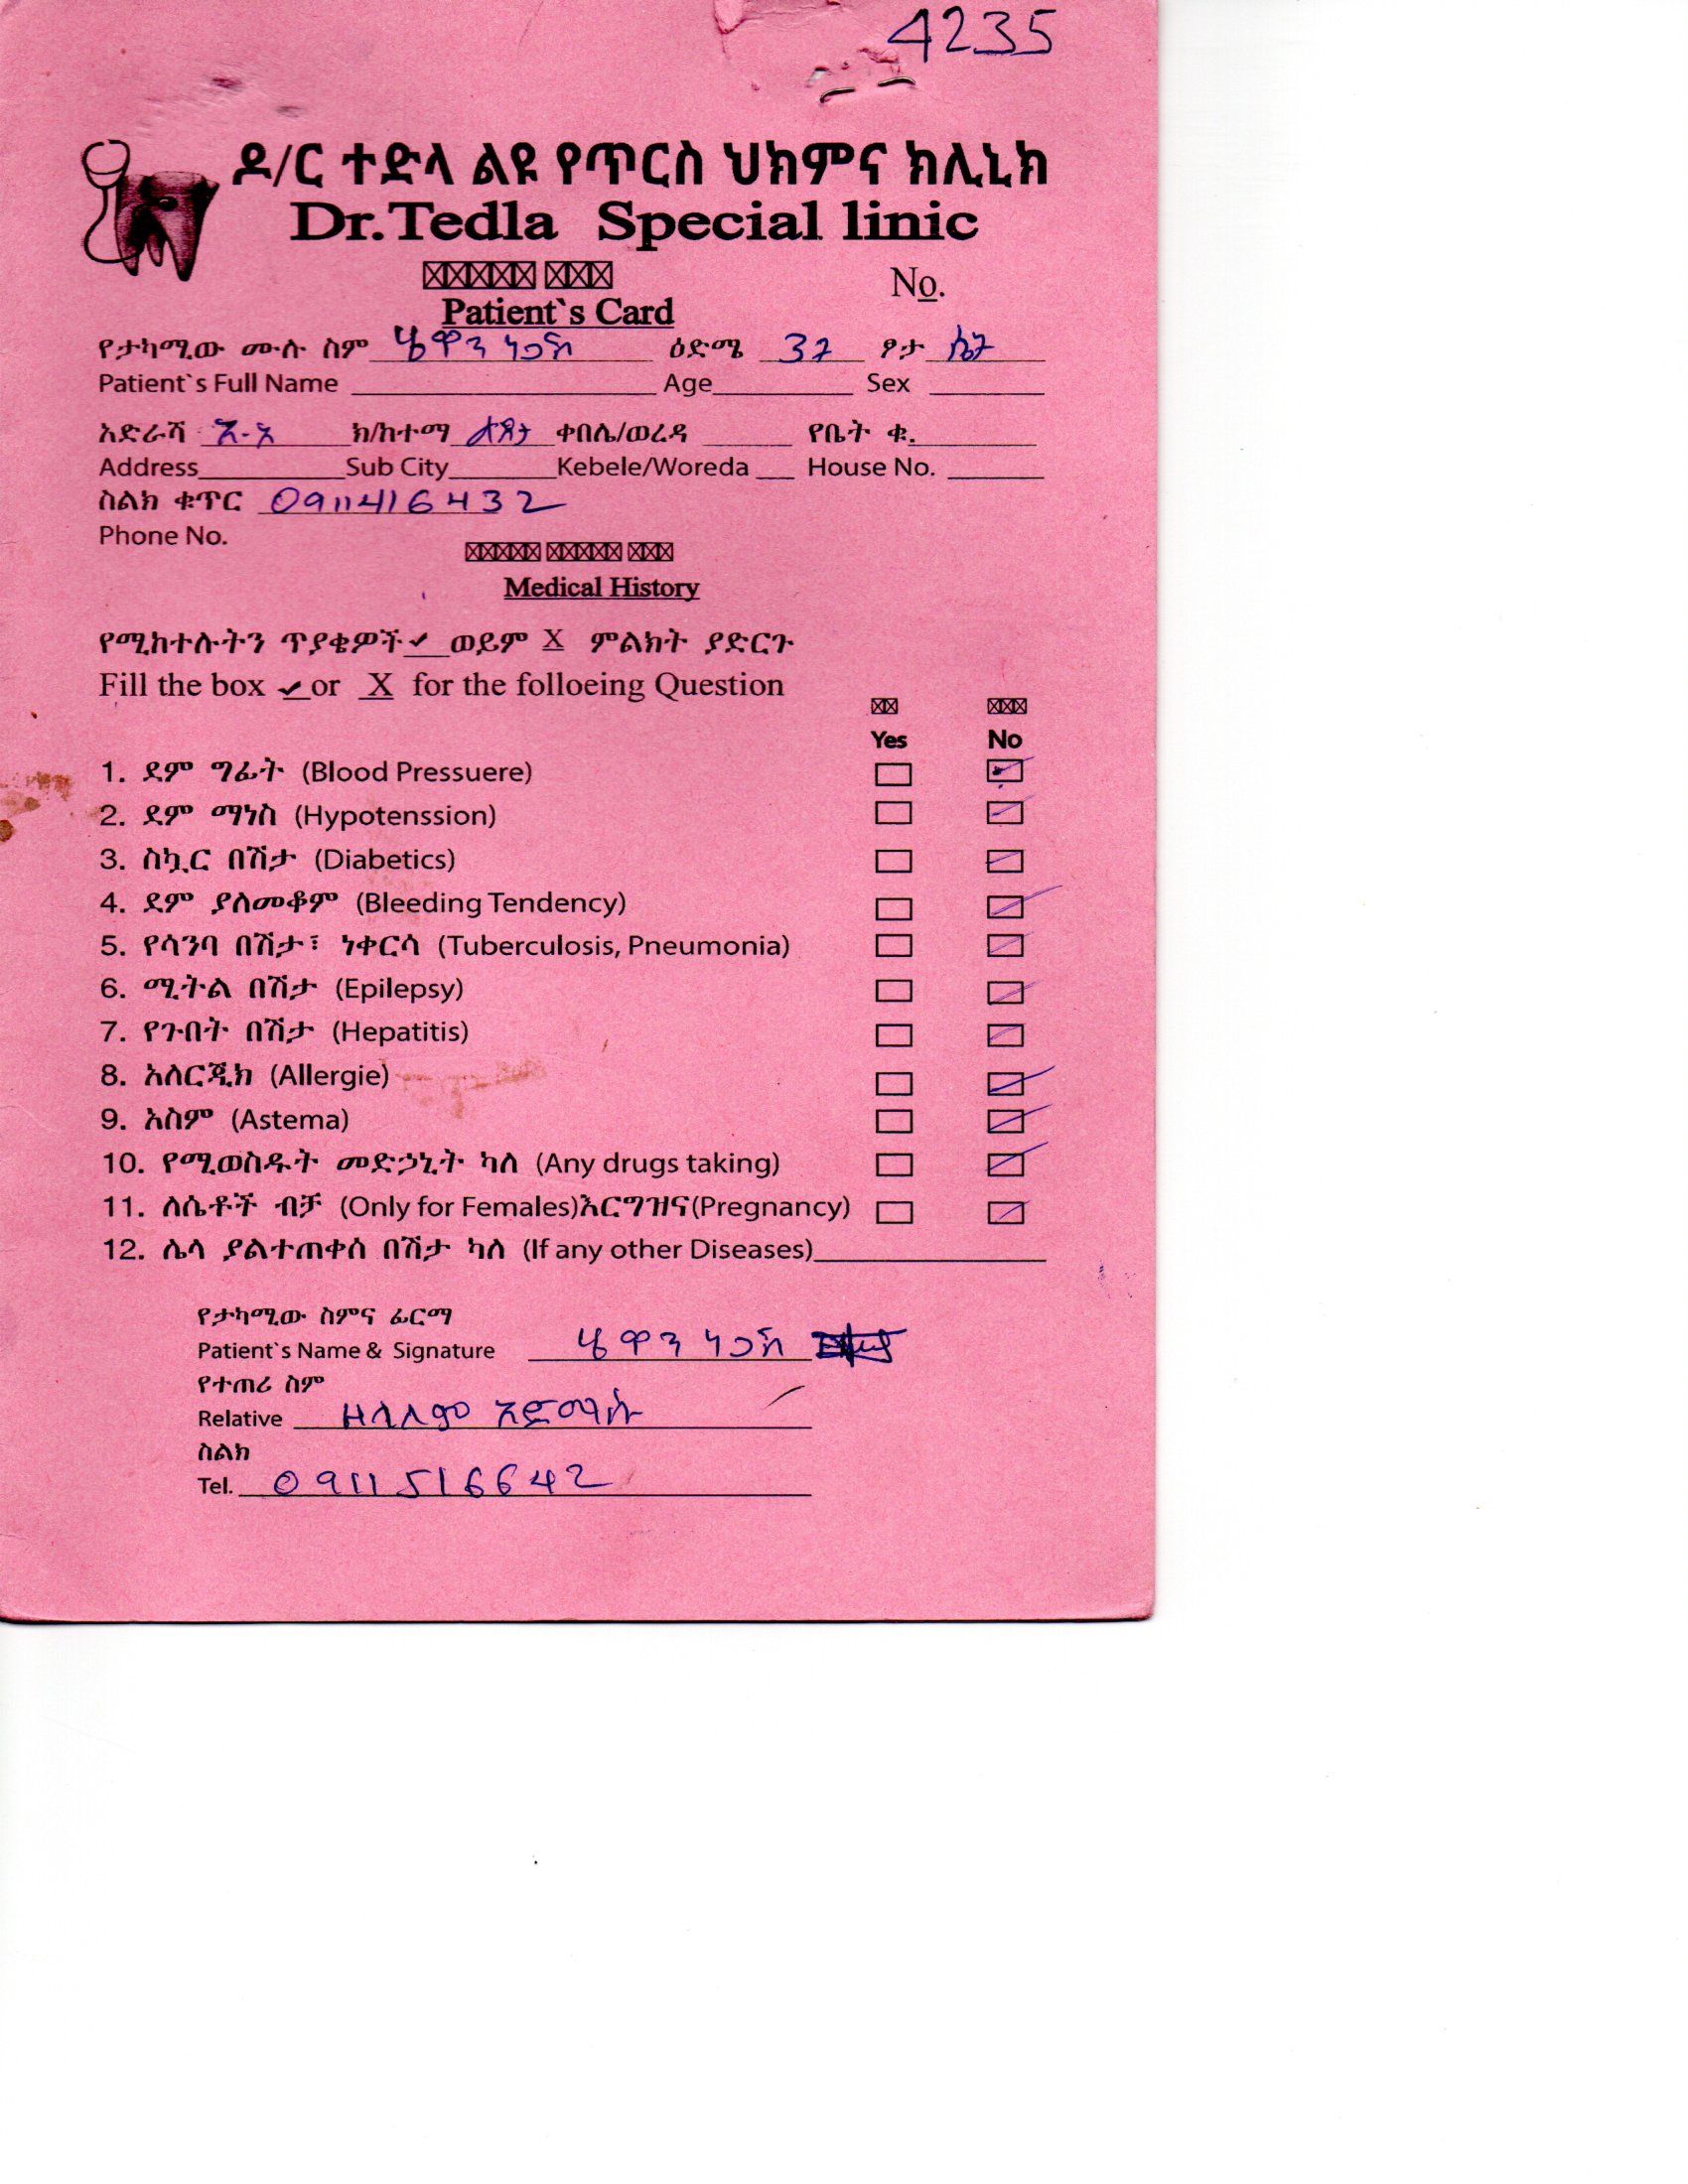 4235
ዶ/ር ተድላ ልዩ የጥርስ ህክምና ክሊኒክ
Dr.Tedla Special linic
No.
Patient`s Card
የታካሚው ሙሉ ስም ሄዋን ነጋሽ ዕድሜ 37 ፆታ ሴት
Patient`s Full Name Age Sex
አድራሻ አ-አ ክ/ከተማ ቀበሌ/ወረዳ የቤት ቁ.
Address Sub City Kebele/Woreda House No.
ስልክ ቁጥር 0911416432
Phone No.
Medical History
የሚከተሉትን ጥያቄዎች ✔ ወይም X ምልክት ያድርጉ
Fill the box ✔ or X for the folloeing Question
Yes No
1. ደም ግፊት (Blood Pressuere)
2. ደም ማነስ (Hypotenssion)
3. ስኳር በሽታ (Diabetics)
4. ደም ያለመቆም (Bleeding Tendency)
5. የሳንባ በሽታ፣ ነቀርሳ (Tuberculosis, Pneumonia)
6. ሚትል በሽታ (Epilepsy)
7. የጉበት በሽታ (Hepatitis)
8. አለርጂክ (Allergie)
9. አስም (Astema)
10. የሚወስዱት መድኃኒት ካለ (Any drugs taking)
11. ለሴቶች ብቻ (Only for Females)እርግዝና(Pregnancy)
12. ሌላ ያልተጠቀሰ በሽታ ካለ (If any other Diseases)
የታካሚው ስምና ፊርማ
Patient`s Name & Signature ሄዋን ነጋሽ
የተጠሪ ስም
Relative ዘላለም አድማሱ
ስልክ
Tel. 0911516642